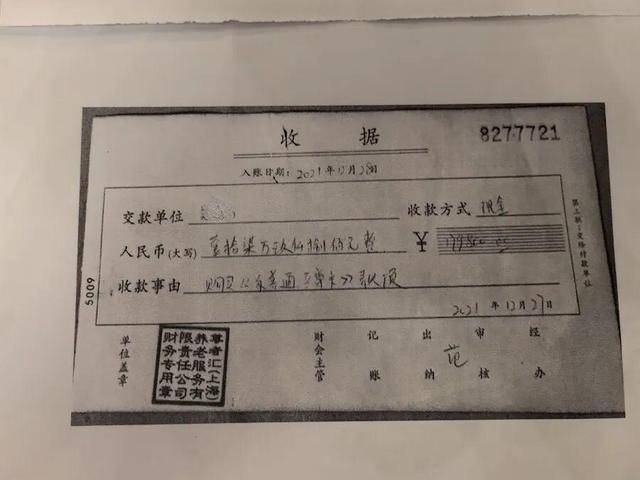 收 据
8277721
入账日期：2021年12月28日
交款单位
收款方式 现金
人民币(大写) 壹拾柒万玖仟捌佰元整
¥ 179800.00
收款事由 购买
2021年12月27日
第三联：交给付款单位
5009
单位盖章
尊者汇(上海)
养老服务有
限责任公司
财务专用章
财会主管
记账
出纳
范
审核
经办